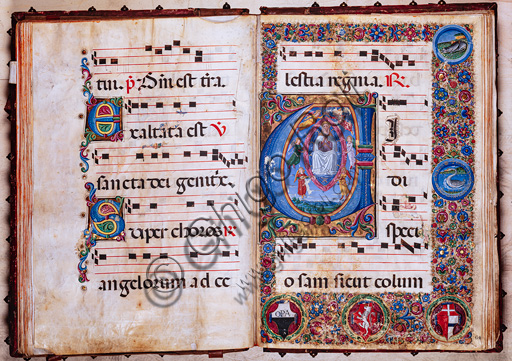 tui. p̃. Qm̃ est ĩra.
exaltata est V
sancta dei genitr̃
Super choros R
angelorum ad ce
lestia regna. R.
VI
di
speci
osam sicut colum
OPA